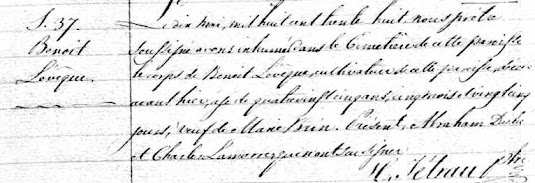 S. 37.
Benoit
Lévêque.
Le dix mai, mil huit cent trente huit, nous prêtre
soussigné avons inhumé dans le Cimetière de cette paroisse
le corps de Benoit Lévêque, cultivateur de cette paroisse, décédé
avant hier, agé de quatre vingt cinq ans, cinq mois et vingt cinq
jours, veuf de Marie Morin. Présent, Abraham
et Charles qui n'ont su signer.
L. Tétreau Ptre